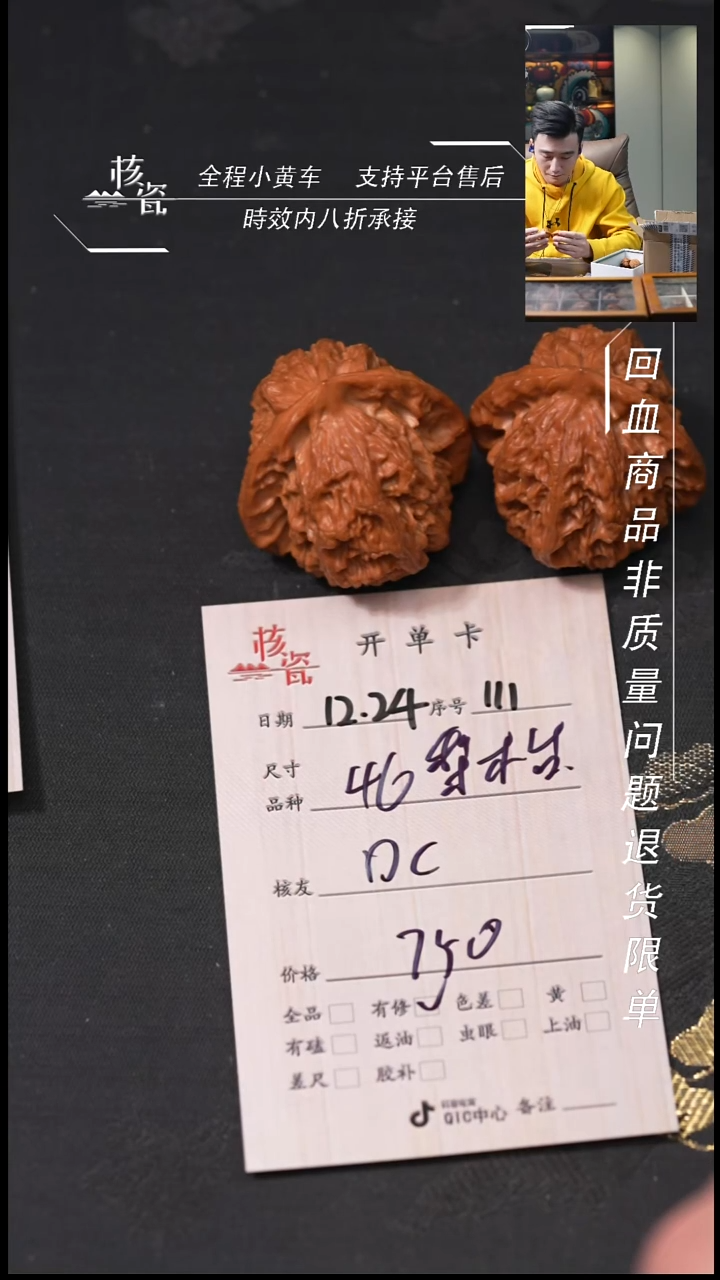 核瓷
全程小黄车 支持平台售后
時效内八折承接
回血商品非质量问题退货限单
核瓷
开单卡
日期 12.24 序号 111
尺寸
品种 46
核友 DC
价格 750
全品 有修 色差 黄
有磕 返油 虫眼 上油
差尺 胶补
QIC中心 备注